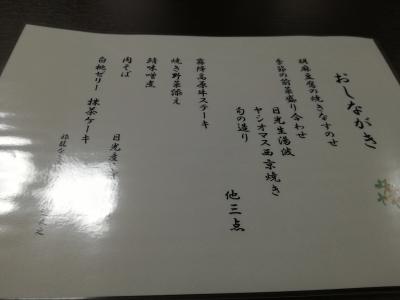 おしながき
胡麻豆腐の焼きなすのせ
季節の前菜盛り合わせ
日光生湯波
ヤシオマス西京焼き
旬の造り
他三点
霧降高原珠ステーキ
焼き野菜添え
鯖味噌煮
肉そば
日光産
白桃ゼリー 抹茶ケーキ